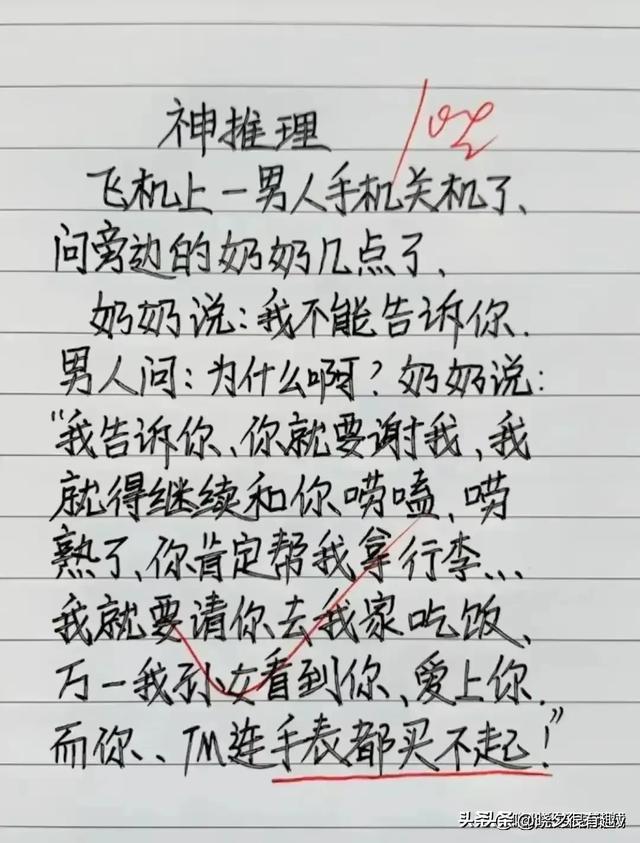 神推理
飞机上一男人手机关机了、
问旁边的奶奶几点了、
奶奶说:我不能告诉你.
男人问:为什么啊?奶奶说:
“我告诉你、你就要谢我,我
就得继续和你唠嗑、唠
熟了、你肯定帮我拿行李...
我就要请你去我家吃饭、
万一我孙女看到你、爱上你.
而你、、TM连手表都买不起!”
头条 @晓攵很有趣